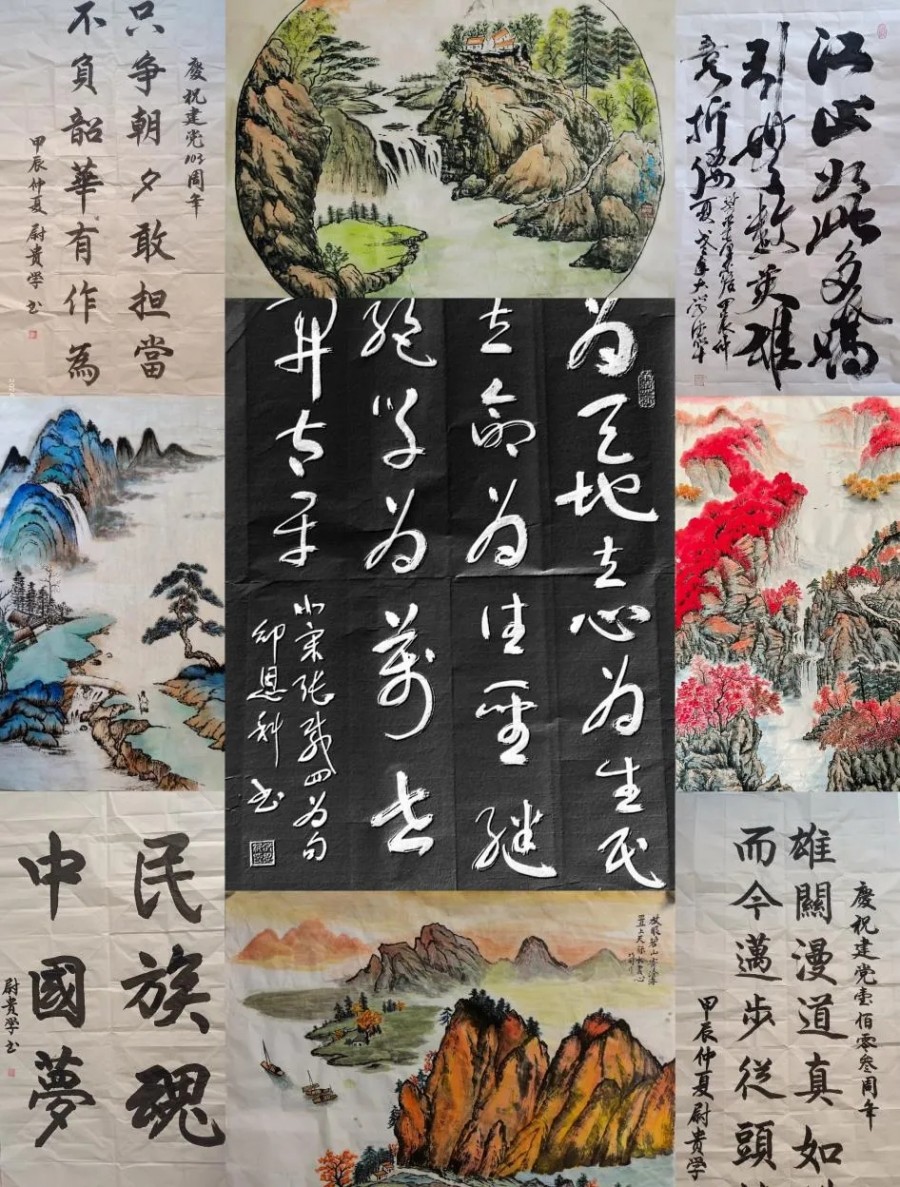 慶祝建党103周年
只争朝夕敢担當
不負韶華有作為
甲辰仲夏 尉貴學书
江山如此多嬌
引無數英雄
竞折腰
为天地立心为生民
立命为往聖継
絶学为萬世
开太平
北宋张载四为句
恩科书
民族魂
中國夢
尉貴學书
慶祝建党壹佰零叁周年
雄關漫道真如
而今邁步從頭
甲辰仲夏尉貴學